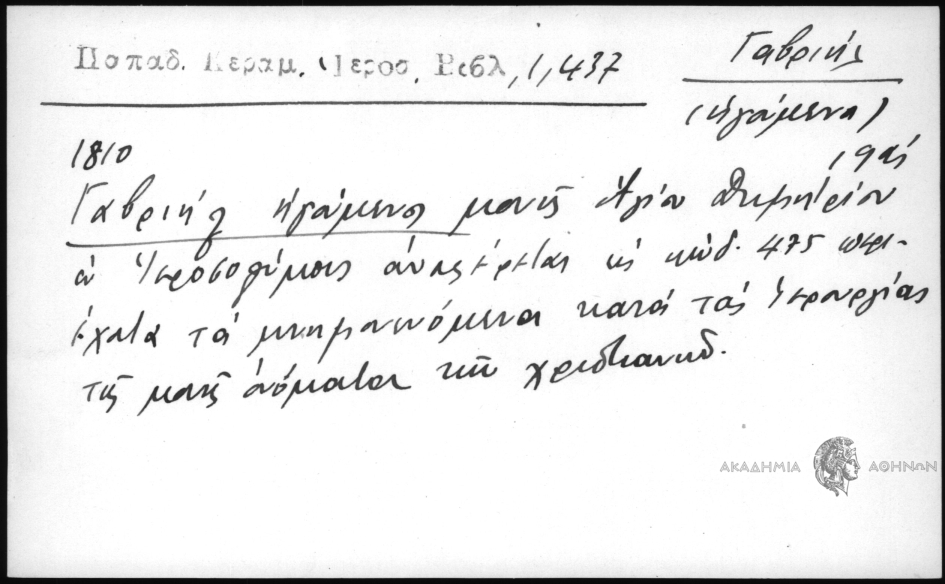 Παπαδ. Κεραμ. Ἱεροσ. Βιβλ, 1, 437
Γαβριήλ
(ἡγούμενος)
1810
19ος
Γαβριήλ ἡγούμενος μονῆς Ἁγίου Δημητρίου
ἐν Ἱεροσολύμοις ἀναφέρεται εἰς κώδ. 475 περι-
έχοντα τά μνημονευόμενα κατά τάς ἱερουργίας
τῆς μονῆς ὀνόματα τῶν χριστιανῶν.
ΑΚΑΔΗΜΙΑ ΑΘΗΝΩΝ